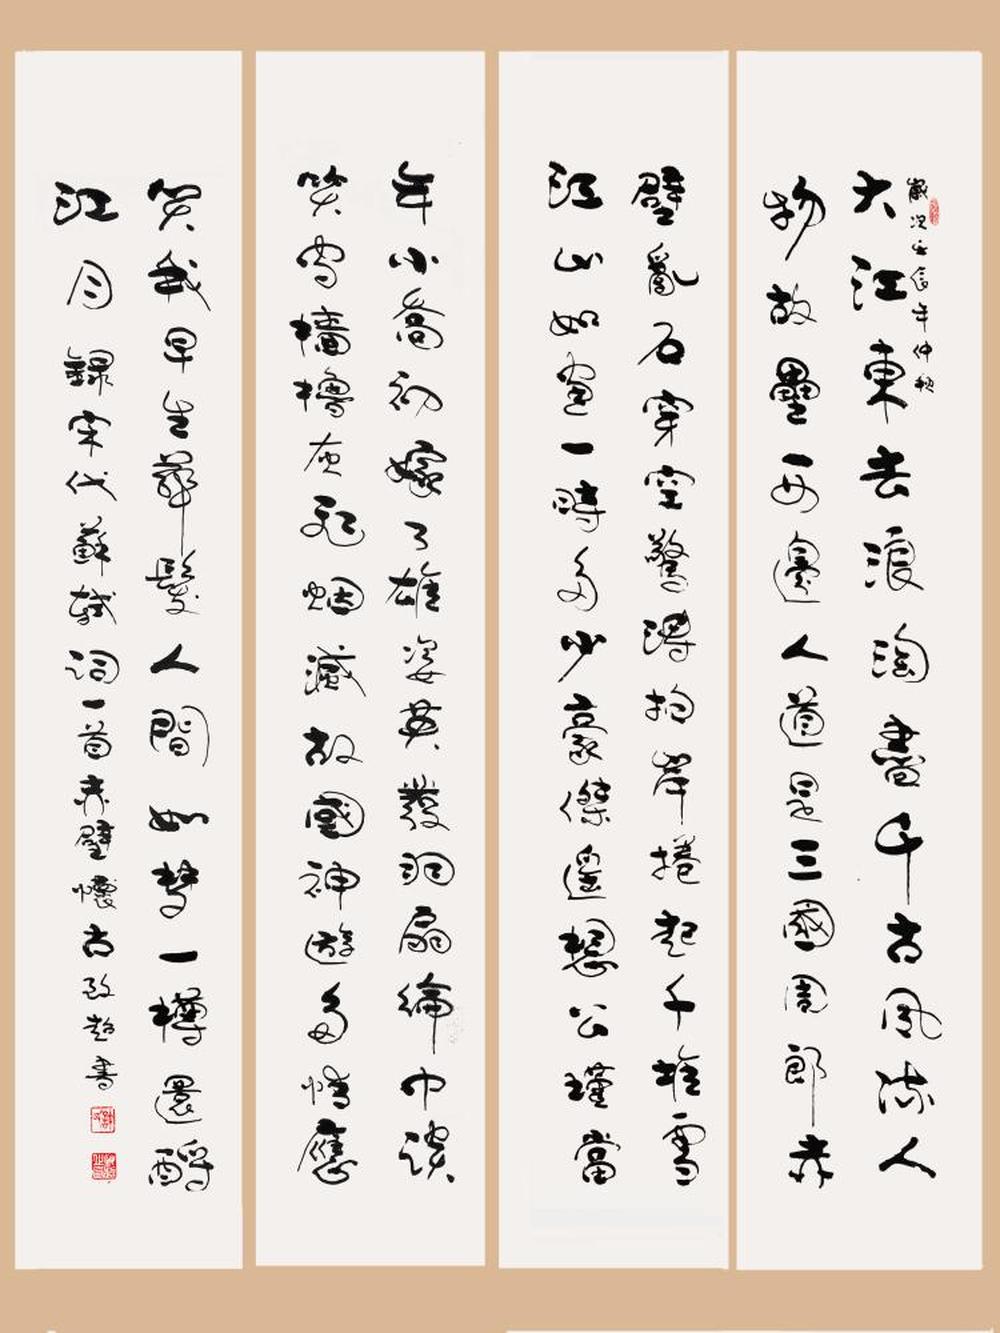 歲次年仲秋
大江東去浪淘盡千古風流人
物故壘西邊人道是三國周郎赤
壁亂石穿空驚濤拍岸捲起千堆雪
江山如畫一時多少豪傑遙想公瑾當
年小喬初嫁了雄姿英發羽扇綸巾談
笑檣櫓灰飛烟滅故國神遊多情應
笑我早生華髮人間如夢一樽還酹
江月錄宋代蘇軾詞一首赤壁懷古書